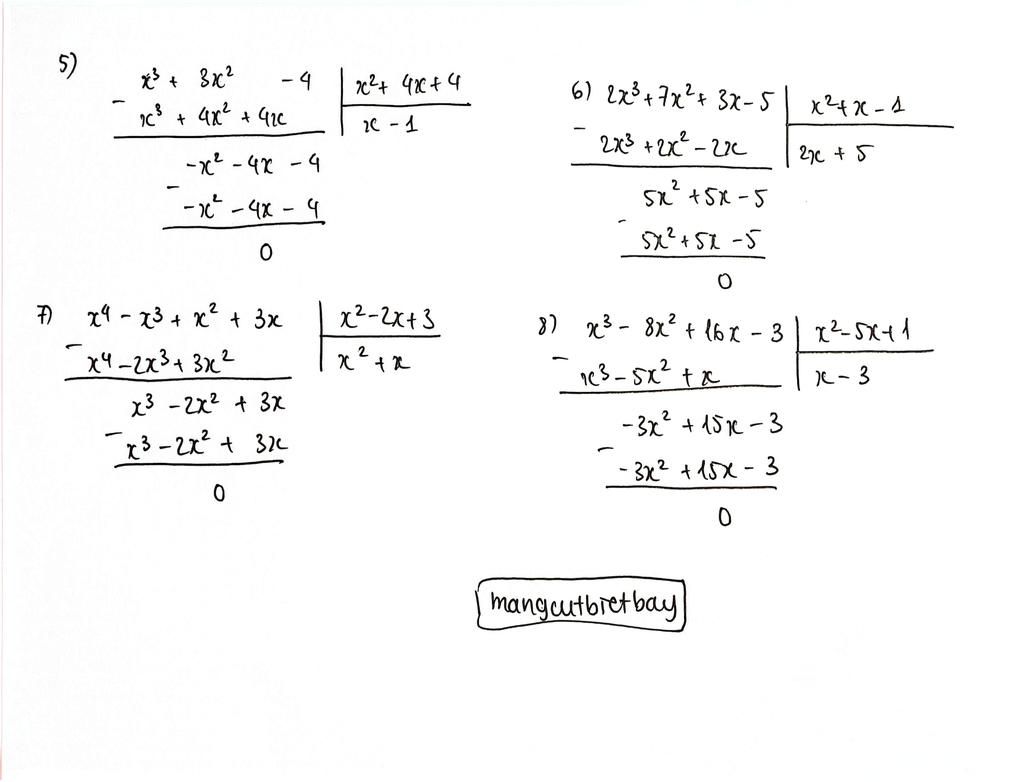 5)
x³ + 3x² - 4 | x² + 4x + 4
- x³ + 4x² + 4x | x - 1
-x² - 4x - 4
- -x² - 4x - 4
0
6) 2x³ + 7x² + 3x - 5 | x² + x - 1
- 2x³ + 2x² - 2x | 2x + 5
5x² + 5x - 5
- 5x² + 5x - 5
0
7) x⁴ - x³ + x² + 3x | x² - 2x + 3
- x⁴ - 2x³ + 3x² | x² + x
x³ - 2x² + 3x
- x³ - 2x² + 3x
0
8) x³ - 8x² + 16x - 3 | x² - 5x + 1
- x³ - 5x² + x | x - 3
-3x² + 15x - 3
- -3x² + 15x - 3
0
mangcutbietbay